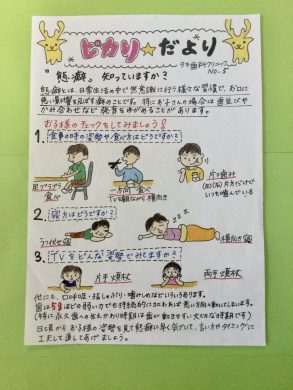 ピカリ☆だより
タモ歯科クリニック
NO.5
"態癖" 知っていますか?
態癖とは、日常生活の中で無意識に行う様々な習慣で、お口に
悪い影響を及ぼす癖のことです。特にお子さんの場合は歯並びや
かみ合せなど発育をゆがめることがあります。
お子様のチェックをしてみましょう!!
1. 食事の時の姿勢や食べ方はどうですか?
足ブラブラ食べ
一方向食べ
TVを観ながら横向き
片噛み
(右)(左)片方だけで
いつも噛んでいる
2. 寝方はどうですか?
うつ伏せ寝
横向き寝
3. TVをどんな姿勢でみてますか?
片手頬杖
両手頬杖
他にも、口呼吸・指しゃぶり・唇かみなどいろいろあります。
歯は
(特に永久歯への生えかわり時期は歯が動きやすい大切な時期です)
日頃からお子様の姿勢を見て態癖に早く気づいて、言い方やタイミングに
工夫して直してあげましょう。